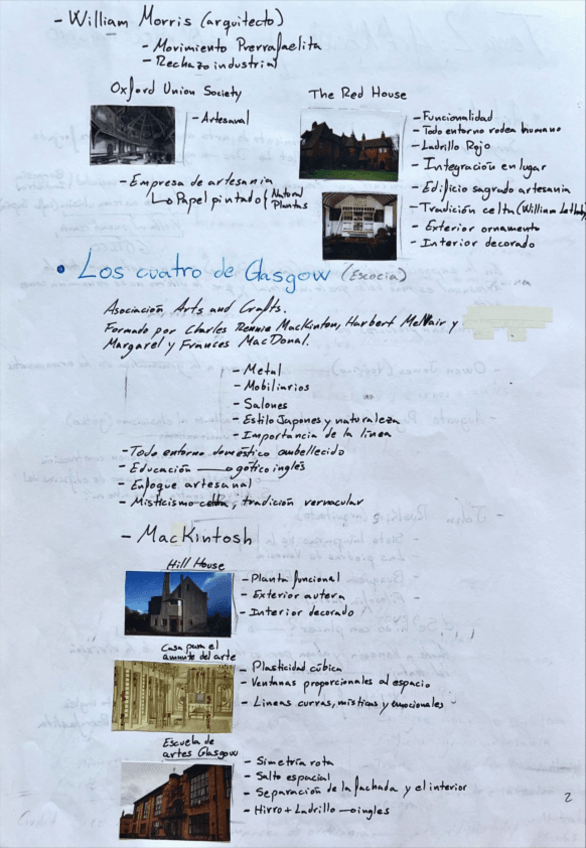 - William Morris (arquitecto)
- Movimiento Prerrafaelita
- Rechazo industrial
Oxford Union Society
- Artesanal
The Red House
- Funcionalidad
- Todo entorno rodea humano
- Ladrillo Rojo
- Integración en lugar
- Edificio sagrado artesania
- Tradición celta (William Lethaby)
- Exterior ornamento
- Interior decorado
- Empresa de artesania
Papel pintado ( Natural
Plantas
• Los cuatro de Glasgow (Escocia)
Asociación Arts and Crafts.
Formado por Charles Rennie Mackinton, Harbert McNair y
Margaret y Frances MacDonal.
- Metal
- Mobiliarios
- Salones
- Estilo Japones y naturaleza
- Importancia de la línea
- Todo entorno doméstico embellecido
- Educación → gótico inglés
- Enfoque artesanal
- Misticismo celta, tradición vernacular
- Mackintosh
Hill House
- Planta funcional
- Exterior autera
- Interior decorado
Casa para el
amante del arte
- Plasticidad cúbica
- Ventanas proporcionales al espacio
- Lineas curvas, místicas y emocionales
Escuela de
artes Glasgow
- Simetría rota
- Salto espacial
- Separación de la fachada y el interior
- Hirro + Ladrillo → ingles
2